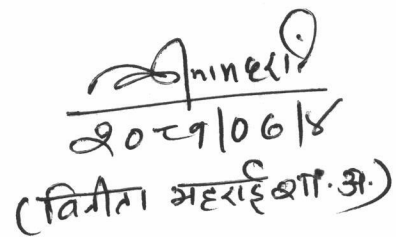 २०८१|०७|४
(विनीता भट्टराई शा.अ.)